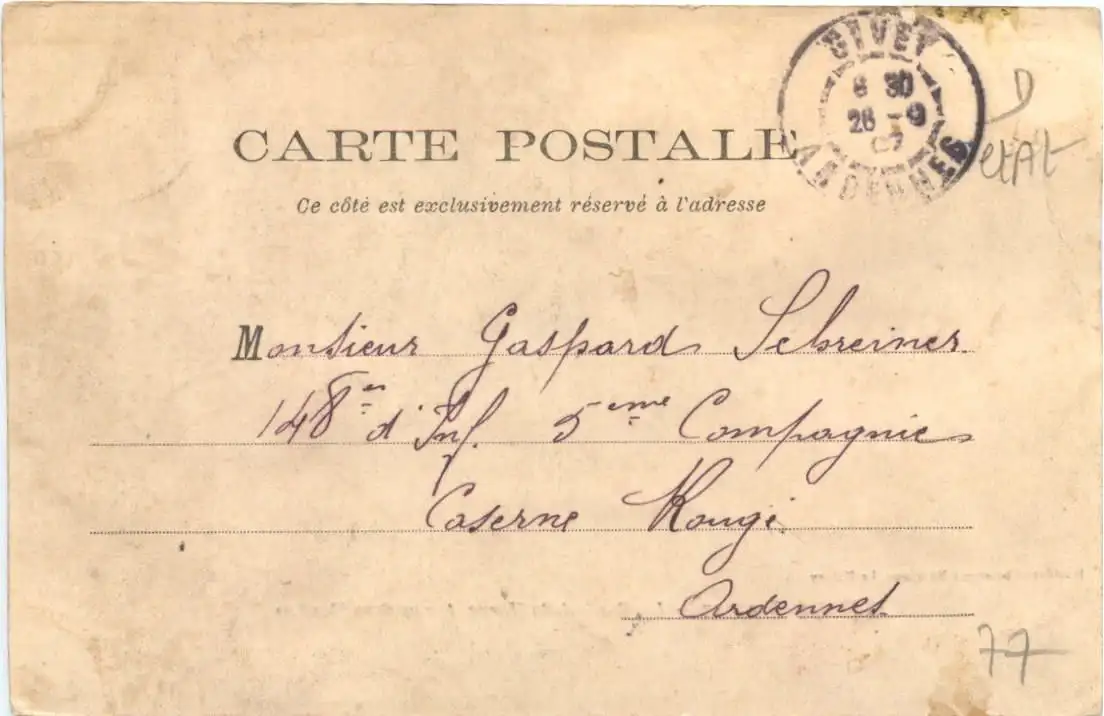 GIVET
8 30
26 - 9
07
ARDENNES
D
etAt
CARTE POSTALE
Ce côté est exclusivement réservé à l'adresse
Monsieur Gaspard Schreiner
148e d'Inf. 5eme Compagnie
Caserne Rouge
Ardennes
77